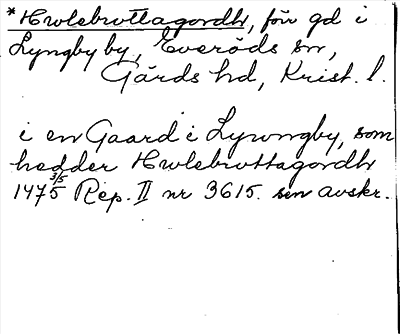 *Hwlebrottagordh, förr gd i
Lyngby by, Everöds sn,
Gärds hd, Krist. l.
i en Gaard i Lywngby, som
hedder Hwlebrottagordh
1475 3/5 Rep. II nr 3615. sen avskr.